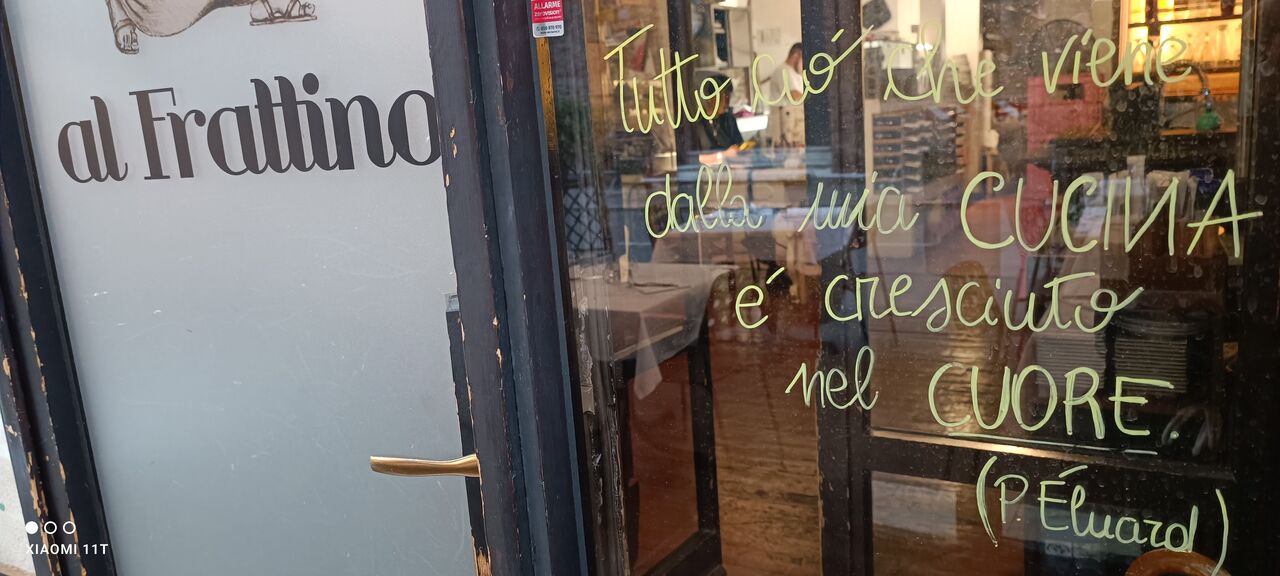 al Frattino
ALLARME
Tutto ciò che viene
dalla mia CUCINA
é cresciuto
nel CUORE.
(P. Éluard)
XIAOMI 11T